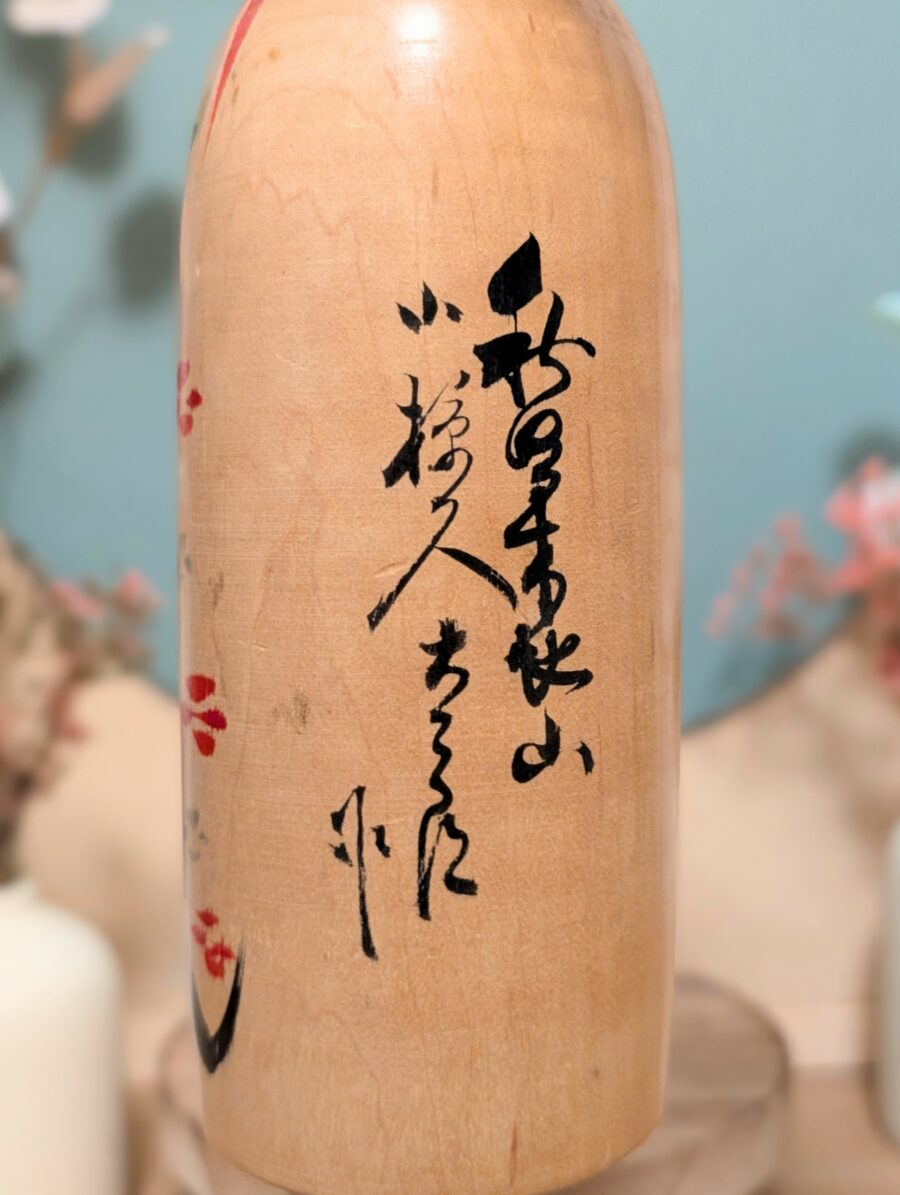 秋田県木地山
小椋久太郎
作